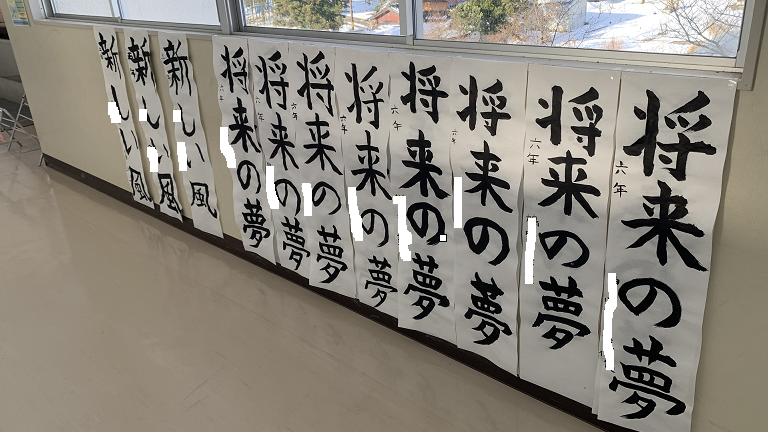 将来の夢
六年
将来の夢
六年
将来の夢
六年
将来の夢
六年
将来の夢
六年
将来の夢
六年
将来の夢
六年
将来の夢
六年
新しい風
新しい風
新しい風